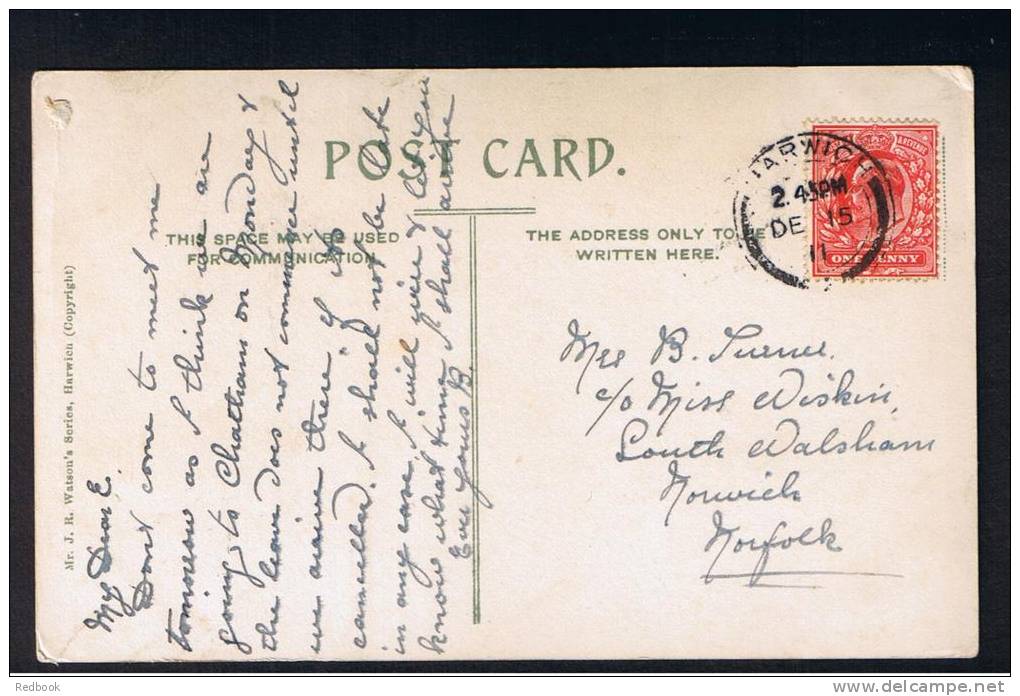 POST CARD.
THIS SPACE MAY BE USED
FOR COMMUNICATION
THE ADDRESS ONLY TO BE
WRITTEN HERE.
Mr. J. R. Watson's Series, Harwich (Copyright)
HARWICH
2.45PM
DE 15
11
ONE PENNY
My Dear E.
Dont come to meet me
tomorrow as I think we are
going to Chatham on Monday &
the leave does not commence until
we arrive there, if its
cancelled. I shall not be late
in any case, I will wire & let you
know what time I shall arrive
Ever Yours B.
Mrs B. Turner.
c/o Miss Wiskin,
South Walsham
Norwich
Norfolk
Redbook
www.delcampe.net